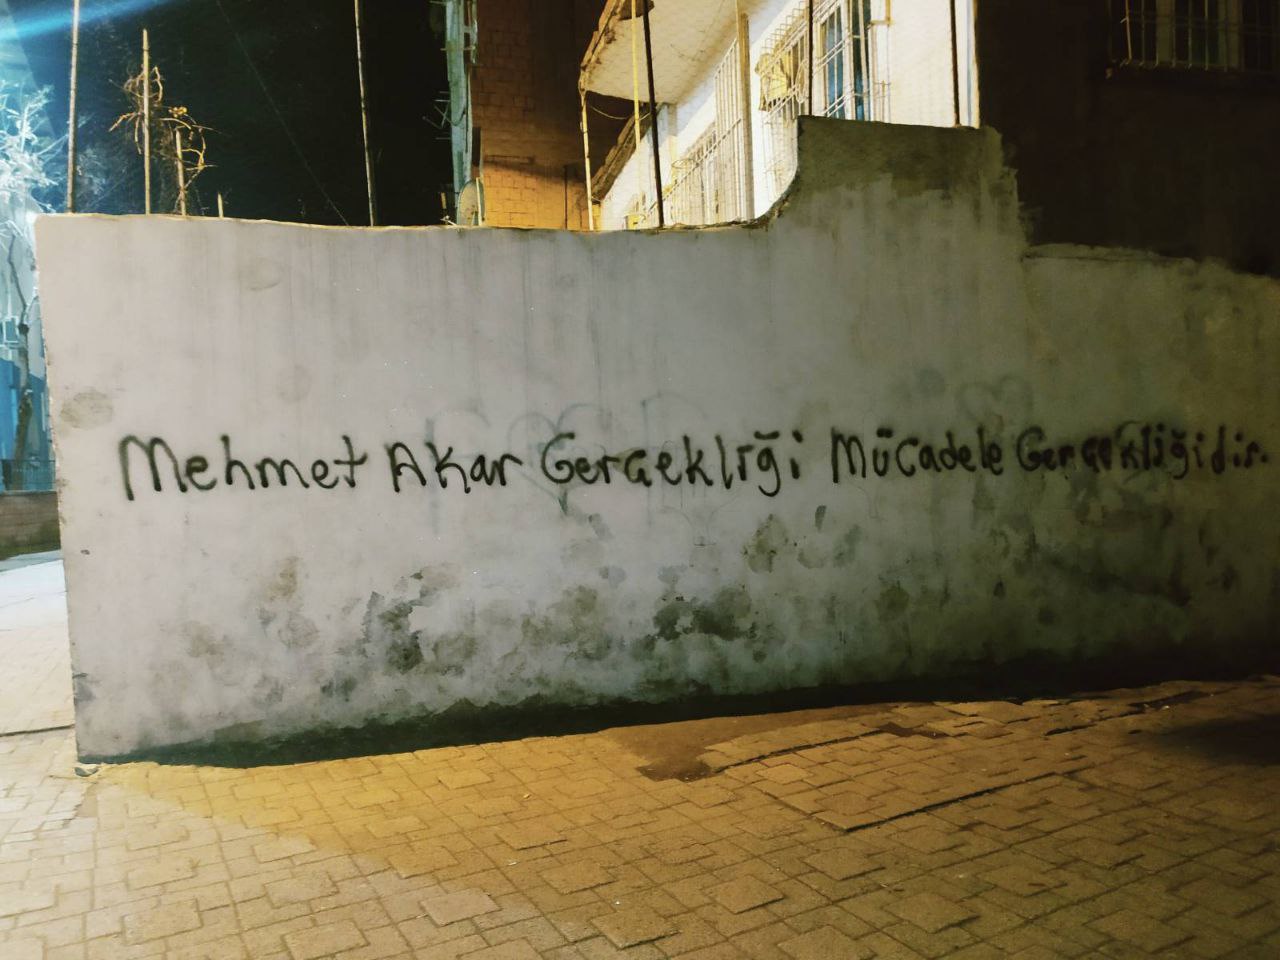 Mehmet Akar Gerçekliği Mücadele Gerçekliğidir.